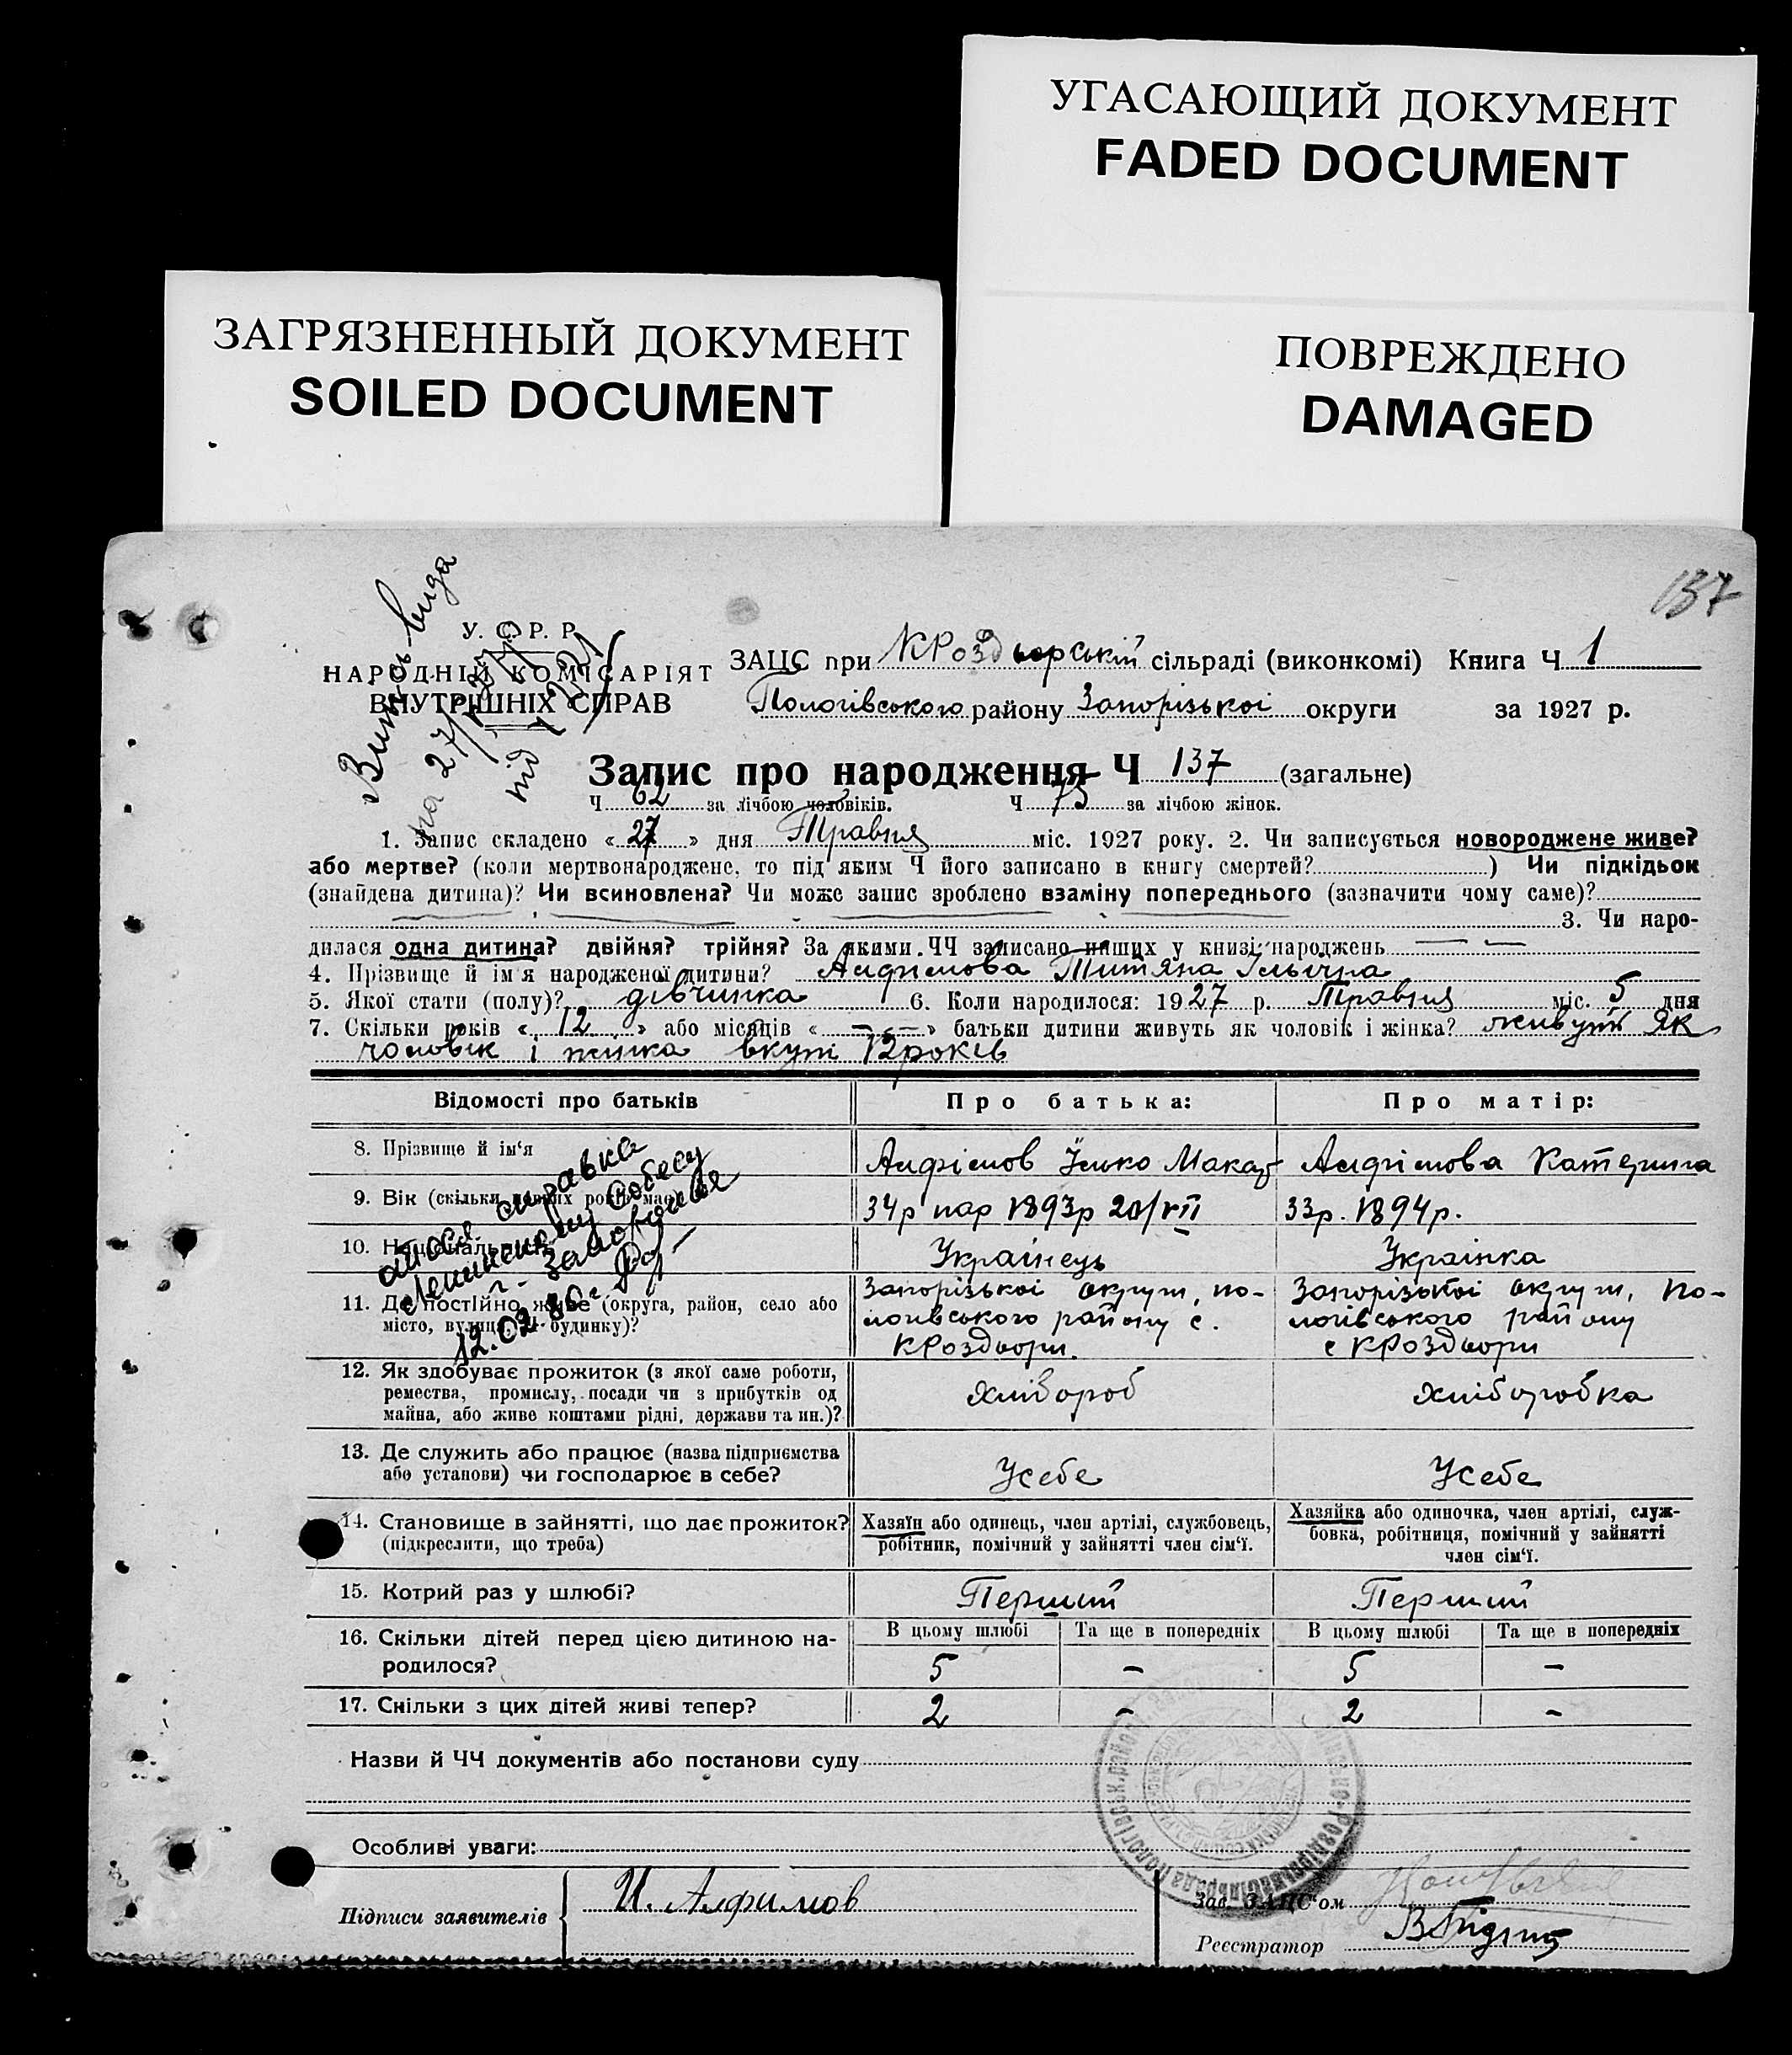 УГАСАЮЩИЙ ДОКУМЕНТ
FADED DOCUMENT
ЗАГРЯЗНЕННЫЙ ДОКУМЕНТ
SOILED DOCUMENT
ПОВРЕЖДЕНО
DAMAGED
137
У. С. Р. Р.
НАРОДНІЙ КОМІСАРІЯТ
ВНУТРІШНІХ СПРАВ
ЗАЦС при КРоздорській сільраді (виконкомі) Книга Ч 1
Пологівського району Запорізької округи за 1927 р.
Запис про народження Ч 137 (загальне)
Ч 62 за лічбою чоловіків. Ч 75 за лічбою жінок.
1. Запис складено « 27 » дня Травня міс. 1927 року. 2. Чи записується новороджене живе?
або мертве? (коли мертвонароджене, то під яким Ч його записано в книгу смертей? ) Чи підкідьок
(знайдена дитина)? Чи всиновлена? Чи може запис зроблено взаміну попереднього (зазначити чому саме)?
3. Чи наро-
дилася одна дитина? двійня? трійня? За якими ЧЧ записано инших у книзі народжень
4. Прізвище й ім'я народженої дитини? Алфімова Титяна Ільічна
5. Якої стати (полу)? дівчинка 6. Коли народилося: 1927 р. Травня міс. 5 дня
7. Скільки років « 12 » або місяців « — » батьки дитини живуть як чоловік і жінка? живуть як
чоловік і жінка вкупі 12 років
Відомості про батьків Про батька: Про матір:
8. Прізвище й ім'я Алфімов Ілько Макар Алфімова Катерина
9. Вік (скільки повних років має) 34р нар 1893р 20/VII 33р. 1894р.
10. Національність Українець Українка
11. Де постійно живе (округа, район, село або
місто, вулиця, Ч будинку)?
Запорізької округи, по-
логівського району с.
КРоздори.
Запорізької округи, По-
логівського району
с КРоздори
12. Як здобуває прожиток (з якої саме роботи,
ремества, промислу, посади чи з прибутків од
майна, або живе коштами рідні, держави та ин.)?
хлібороб хліборобка
13. Де служить або працює (назва підприємства
або установи) чи господарює в себе?
Усебе Усебе
14. Становище в зайнятті, що дає прожиток?
(підкреслити, що треба)
Хазяїн або одинець, член артілі, службовець,
робітник, помічний у зайнятті член сім'ї.
Хазяйка або одиночка, член артілі, служ-
бовка, робітниця, помічний у зайнятті
член сім'ї.
15. Котрий раз у шлюбі? Перший Перший
16. Скільки дітей перед цією дитиною на-
родилося?
В цьому шлюбі Та ще в попередніх В цьому шлюбі Та ще в попередніх
5 — 5 —
17. Скільки з цих дітей живі тепер? 2 - 2 -
Назви й ЧЧ документів або постанови суду
Особливі уваги:
Підписи заявителів И. Алфимов
Зав. ЗАЦС'ом
Реєстратор